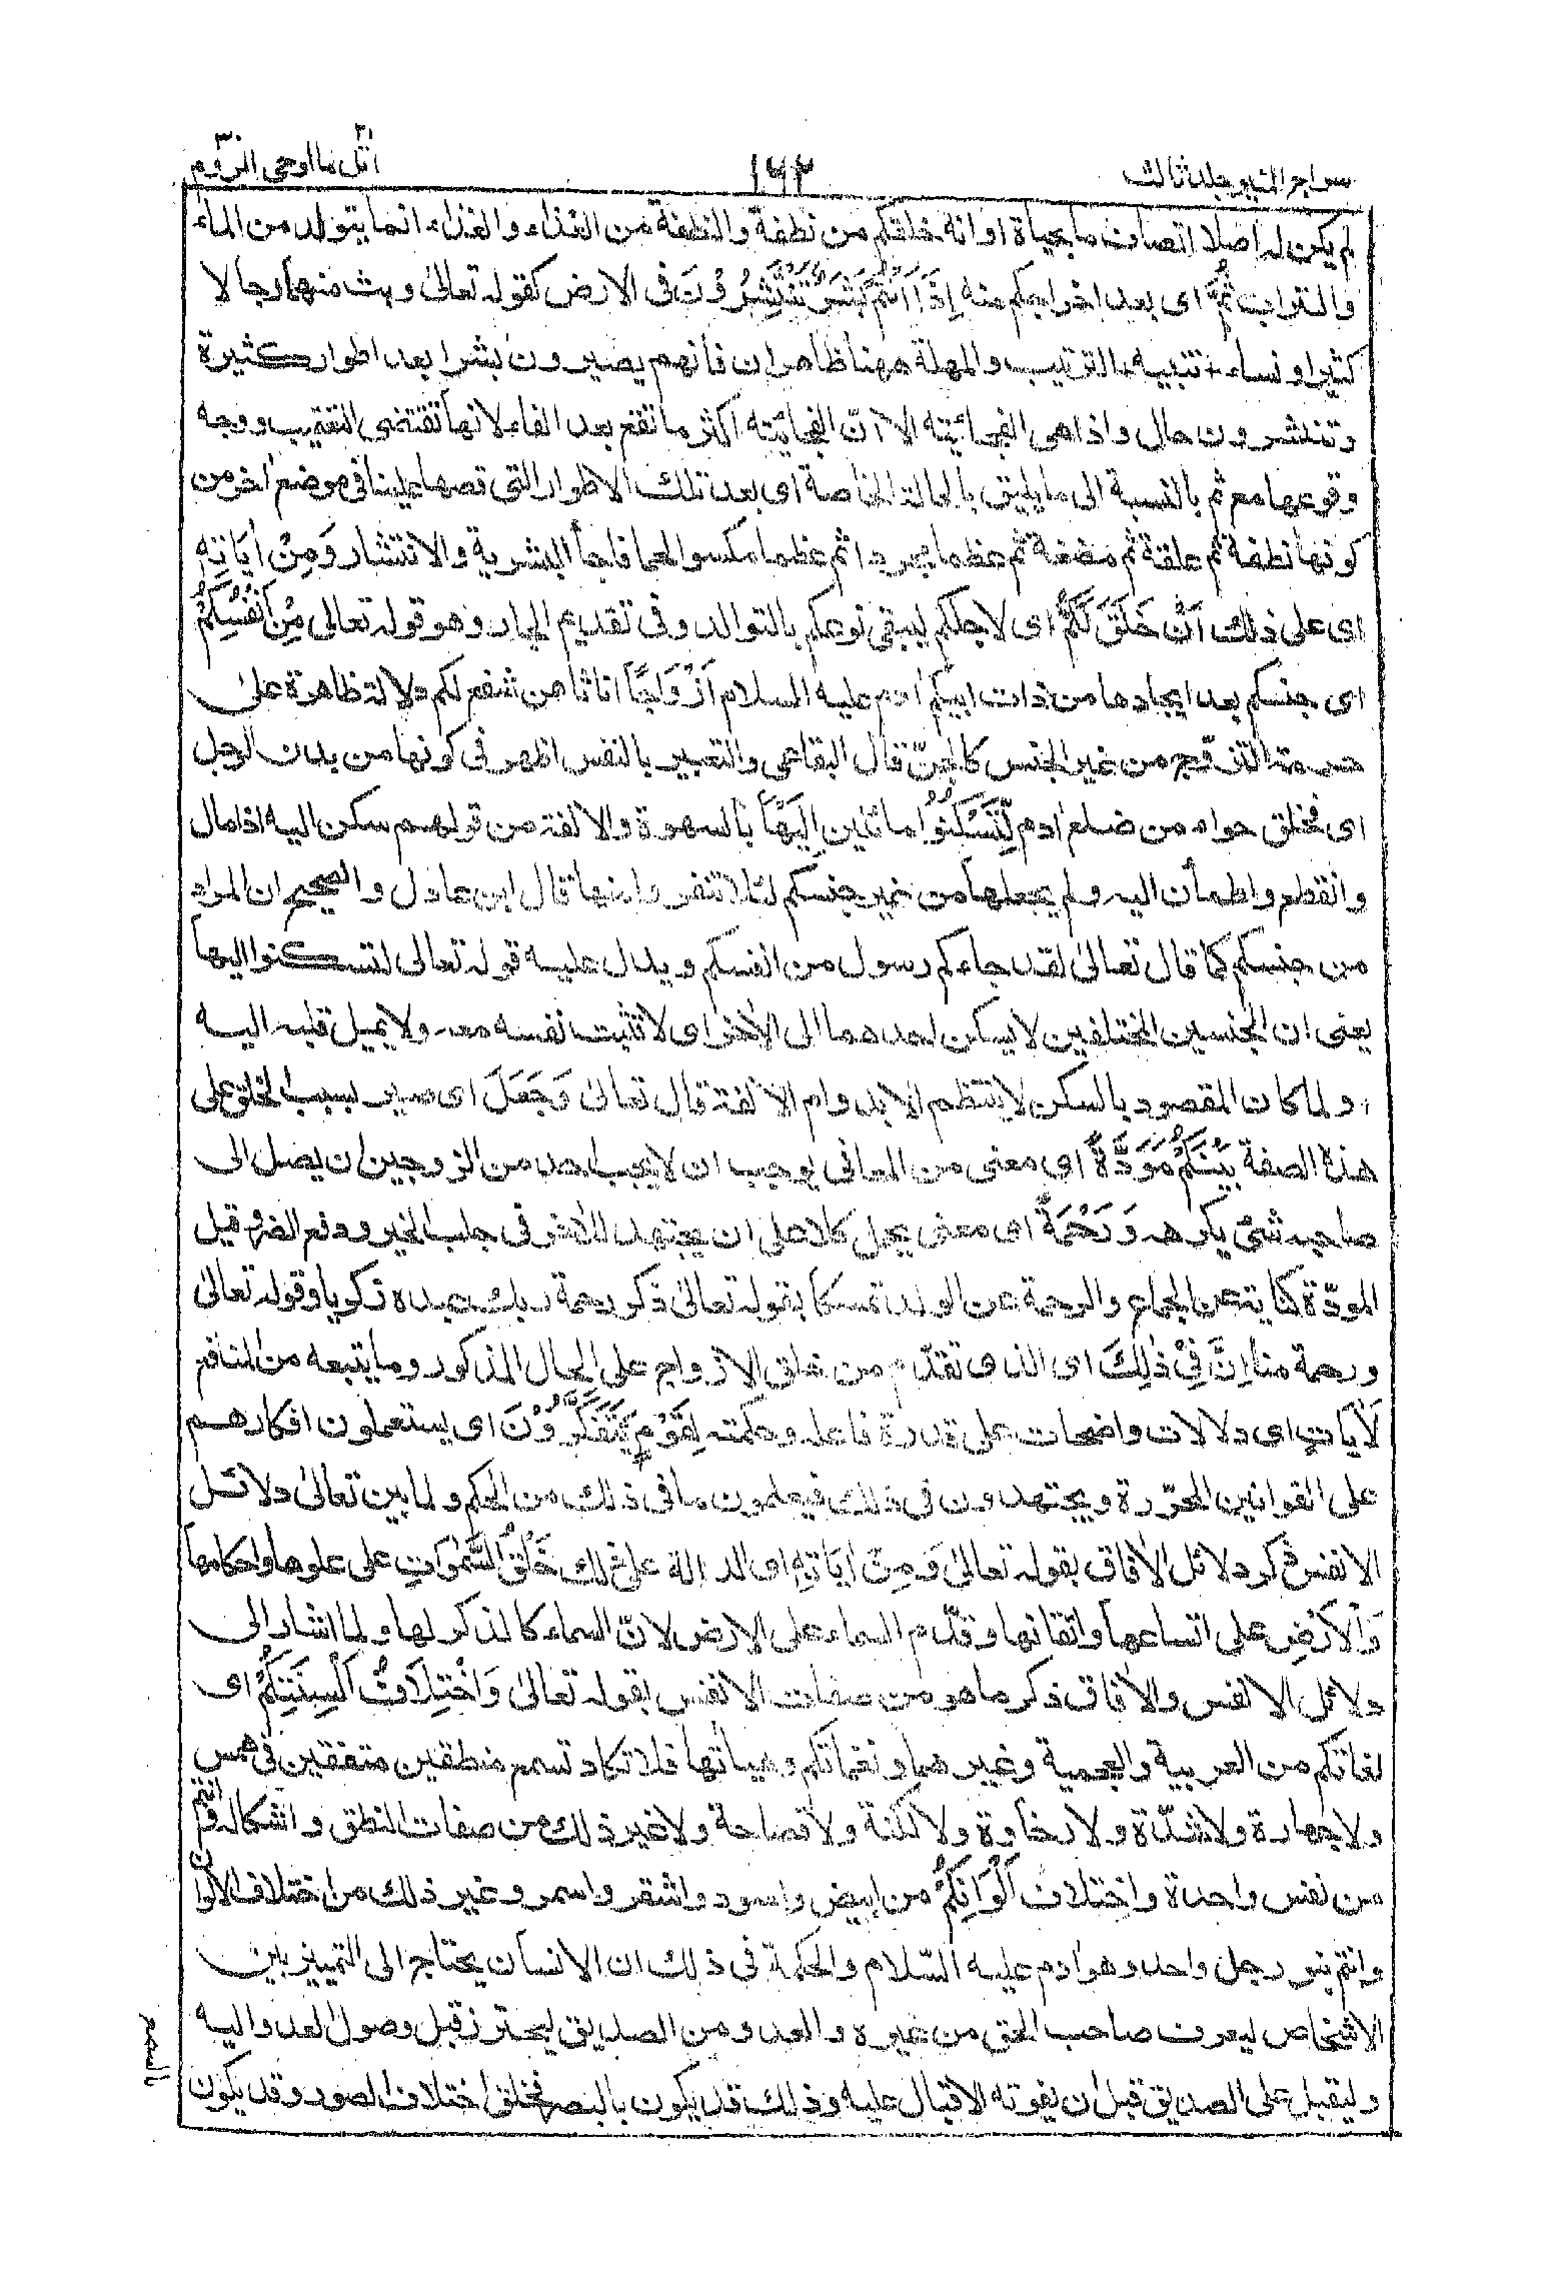 سراج المنير جلد ثالث
١٦٢
اتل ما اوحى الروم ٢١ ٣
لم يكن له اصلا اتصاف ما بحياة او انه خلقكم من نطفة والنطفة من الغذاء والغذاء انما يتولد من الماء
والتراب ثُمَّ اى بعد اخراجكم منه اِذَا اَنْتُمْ بَشَرٌ تَنْتَشِرُوْنَ فى الارض كقوله تعالىٰ وبث منهما رجالا
كثيرا ونساء ۞ تنبيه ۞ الترتيب والمهلة ههنا ظاهران فانهم يصيرون بشرا بعد اطوار كثيرة
وتنتشرون حال واذا هى الفجائيته الا انّ الفجائيته اكثر ما تقع بعد الفاء لانها تقتضى التعقيب ووجه
وقوعها مع ثم بالنسبة الى ما يليق بالحالة الخاصة اى بعد تلك الاطوار التى قصها علينا فى موضع اٰخر من
كونها نطفة ثم علقة ثم مضغة ثم عظما مجردا ثم عظما مكسوا لحما فاجأ البشرية والانتشار وَمِنْ اٰيَاتِهٖ
اى على ذلك اَنْ خَلَقَ لَكُمْ اى لاجلكم ليبقى نوعكم بالتوالد وفى تقديم الجار وهو قوله تعالى مِنْ اَنْفُسِكُمْ
اى جنسكم بعد ايجادها من ذات ابيكم اٰدم عليه السلام اَزْوَاجًا اناثا هن شفع لكم دلالة ظاهرة علىٰ
حرمة التزوّج من غير الجنس كالجنّ قال البقاعى والتعبير بالنفس اظهر فى كونها من بدن الرجل
اى فخلق حواء من ضلع اٰدم لِّتَسْكُنُوْا مائلين اِلَيْهَا بالسهوة والالفة من قولهم سكن اليه اذا مال
وانقطع واطمأن اليه ولم يجعلها من غير جنسكم لئلا تنفروا منها قال ابن عادل والصحيح ان المراد
من جنسكم كما قال تعالىٰ لقد جاءكم رسول من انفسكم ويدل عليه قوله تعالى لتسكنوا اليها
يعنى ان الجنسين المختلفين لا يسكن احدهما الى الاٰخر اى لا تثبت نفسه معه ولا يميل قلبه اليه
ولما كان المقصود بالسكن لا ينتظم الا بدوام الالفة قال تعالىٰ وَجَعَلَ اى صير بسبب الخلق على
هذه الصفة بَيْنَكُمْ مَّوَدَّةً اى معنى من المعانى يوجب ان لا يحب احد من الزوجين ان يصل الى
صاحبه شئ يكرهه وَرَحْمَةً اى معنى يحمل كلا على ان يجتهد للاٰخر فى جلب الخير ودفع الضر قيل
المودّة كناية عن الجماع والرحمة عن الولد تمسكا بقوله تعالىٰ ذكر رحمة ربك عبده زكريا وقوله تعالىٰ
ورحمة منا اِنَّ فِيْ ذٰلِكَ اى الذى تقدّم من خلق الازواج على الحال المذكور وما يتبعه من المنافع
لَاٰيَاتٍ اى دلالات واضحات على قدرة فاعله وحكمته لِقَوْمٍ يَّتَفَكَّرُوْنَ اى يستعملون افكارهم
على القوانين المحرّرة ويجتهدون فى ذلك فيعلمون ما فى ذلك من الحكم ولما بين تعالىٰ دلائل
الانفس ذكر دلائل الاٰفاق بقوله تعالىٰ وَمِنْ اٰيَاتِهٖ اى الدالة على ذلك خَلْقُ السَّمٰوٰتِ على علوها واحكامها
وَالْاَرْضِ على اتساعها واتقانها وقدّم السماء على الارض لانّ السماء كالذكر لها ولما اشار الى
دلائل الانفس والاٰفاق ذكر ما هو من صفات الانفس بقوله تعالىٰ وَاخْتِلَافُ اَلْسِنَتِكُمْ اى
لغاتكم من العربية والعجمية وغيرهما ونغماتكم وهياٰتها فلا تكاد تسمع منطقين متفقين فى همس
ولا جهارة ولا شدّة ولا رخاوة ولا لكنة ولا فصاحة ولا غير ذلك من صفات النطق واشكاله فانتم
من نفس واحدة واختلاف اَلْوَانِكُمْ من ابيض واسود واشقر واسمر وغير ذلك من اختلاف الالوان
وانتم بنو رجل واحد وهو اٰدم عليه السّلام والحكمة فى ذلك ان الانسان يحتاج الى التمييز بين
الاشخاص ليعرف صاحب الحق من غيره والعدو من الصديق ليحترز قبل وصول العدو اليه
وليقبل على الصديق قبل ان يفوته الاقبال عليه وذلك قد يكون بالبصر فخلق اختلاف الصور وقد يكون
بالسمع